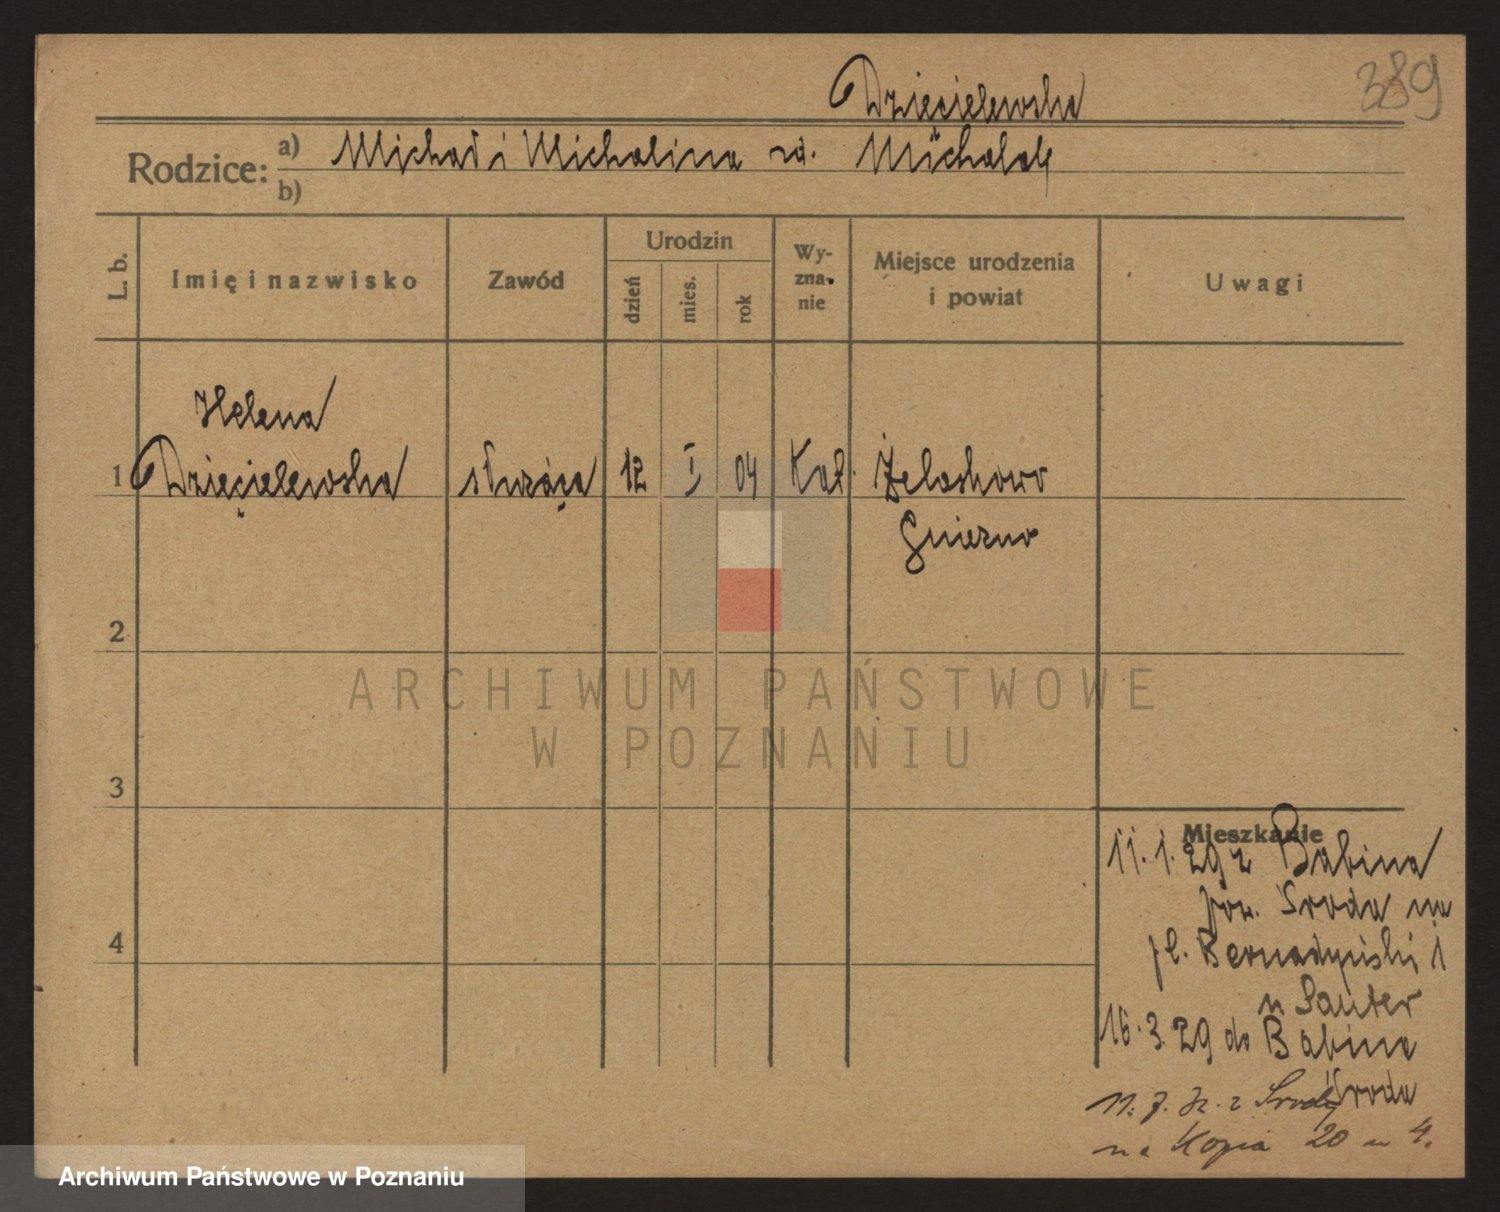 389
Dzięcielewska
Rodzice: a) Michał i Michalina zd. Michalak
b)
L. b. Imię i nazwisko Zawód Urodzin dzień mies. rok Wyzna-nie Miejsce urodzenia i powiat Uwagi
Helena
1 Dzięcielewska służąca 12 I 04 Kat. Żelaskowo
Gniezno
2
ARCHIWUM PAŃSTWOWE
W POZNANIU
3
Mieszkanie
11.1.29 z Babina
pow. Środa na
pl. Bernadyński 1
u Sauter
16.3.29 do Babina
Środa
11. 7. z Środy
na 20 4.
Archiwum Państwowe w Poznaniu